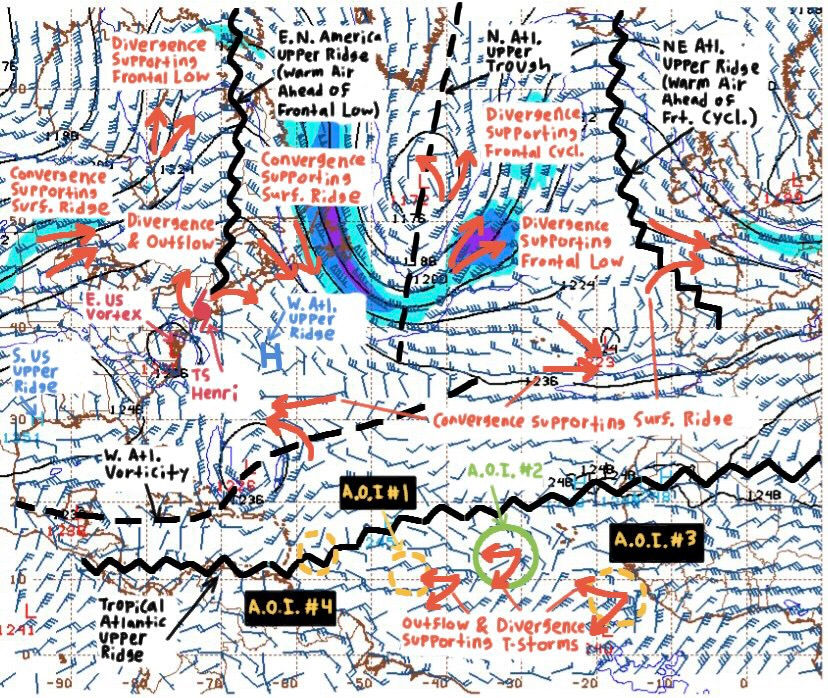 Divergence
Supporting
Frontal Low
E.N. America
Upper Ridge
(Warm Air
Ahead of
Frontal Low)
N. Atl.
Upper
Trough
NE Atl.
Upper Ridge
(Warm Air
Ahead of
Frt. Cycl.)
Divergence
Supporting
Frontal Cycl.
Convergence
Supporting
Surf. Ridge
Convergence
Supporting
Surf. Ridge
Divergence
& Outflow
Divergence
Supporting
Frontal Low
E. US
Vortex
W. Atl.
Upper
Ridge
H
S. US
Upper
Ridge
TS
Henri
Convergence Supporting Surf. Ridge
W. Atl.
Vorticity
A.O.I #1
A.O.I. #2
A.O.I. #3
A.O.I. #4
Tropical
Atlantic
Upper
Ridge
Outflow & Divergence
Supporting T-Storms
1188
1224
1176
1200
1224
1236
1248
1236
1248
L
1241
-90
-80
-70
-60
-50
-40
-30
-20
-10
0